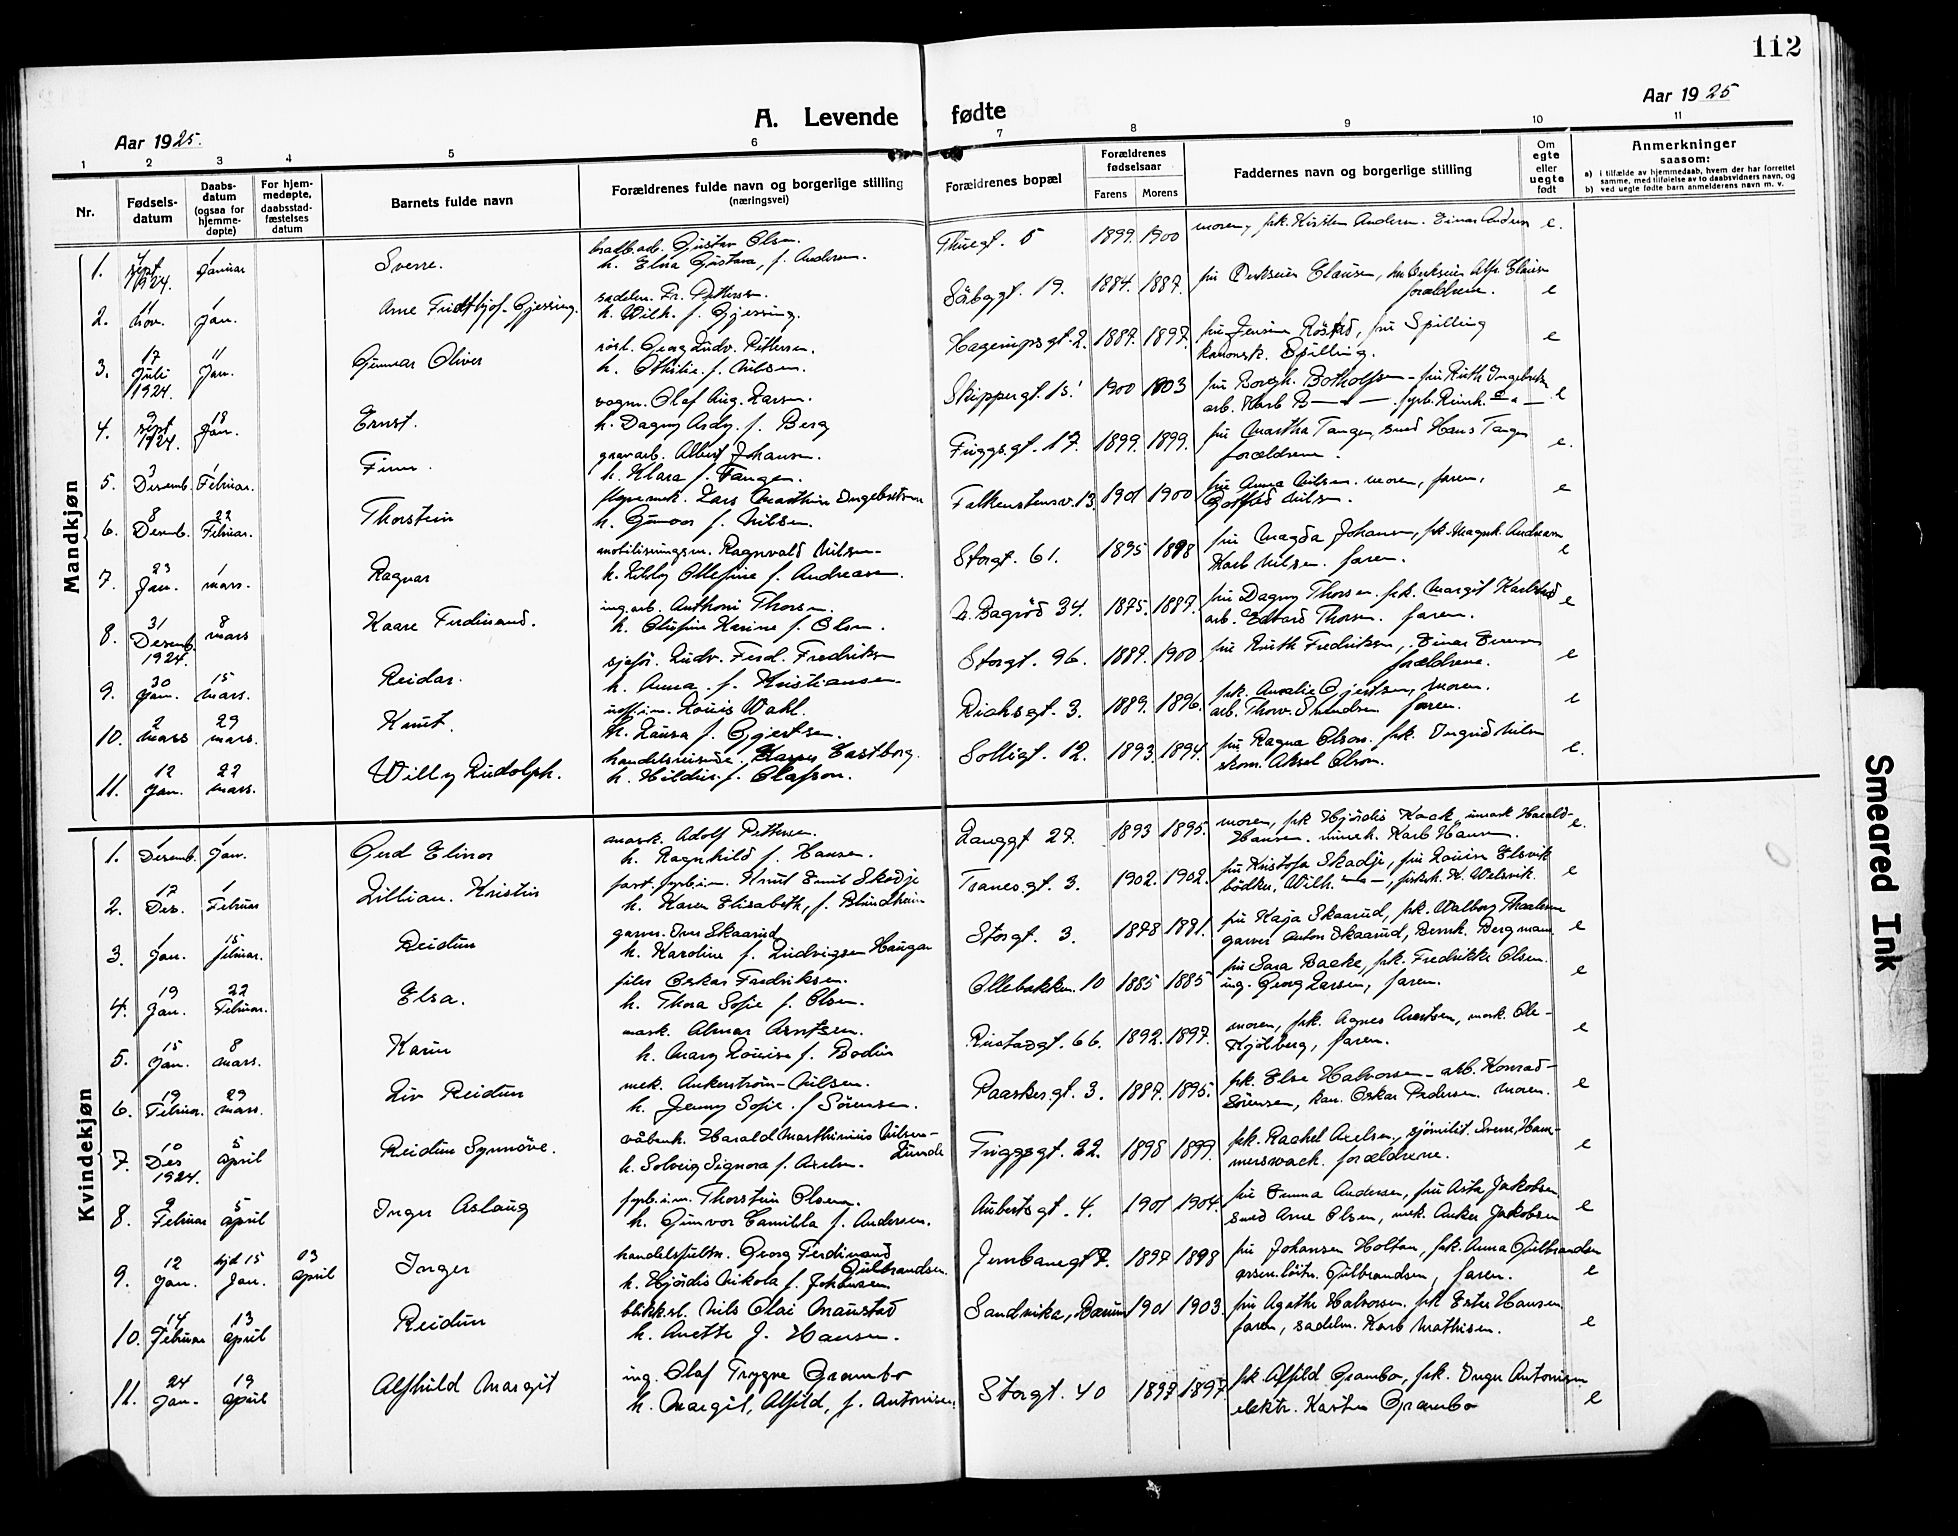 112
Aar 1925.
A. Levende fødte
Aar 1925
1 2 3 4 5 6 7 8 9 10 11
Nr.
Fødsels-
datum
Daabs-
datum
(ogsaa for
hjemme-
døpte)
For hjem-
medøpte,
daabsstad-
fæstelses
datum
Barnets fulde navn
Forældrenes fulde navn og borgerlige stilling
(næringsvei)
Forældrenes bopæl
Forældrenes
fødselsaar
Farens Morens
Faddernes navn og borgerlige stilling
Om
egte
eller
uegte
født
Anmerkninger
saasom:
a) i tilfælde av hjemmedaab, hvem der har forrettet
samme, med tilføielse av to daabsvidners navn, og
b) ved uegte fødte barn anmelderens navn m. v.
Mandkjøn
1. Sept 1924. 1 Januar Sverre. Gustav Olsen.
h. Elna Gustava, f. Andersen. Thuegt. 5 1899. 1900 moren, frk. Kirsten Andersen. Einar Anders e.
2. 11 Nov. 1 Jan. Arne Fridthjof Gjessing. sadelm. Fr. Pettersen.
h. Wilh. f. Gjessing. Säbygt. 19. 1884. 1887.
forældrene. e
3. 17 Juli 1924. 11 Jan. Gunnar Oliver Georg Ludv. Pettersen.
h. Othilie f. Nilsen. Hagerupsgt. 2. 1887. 1897. fru Jensine Røsted, fru Spilling
kanonsk. Spilling. e
4. 9 Sept 1924. 18 Jan. Ernst. vogm. Olaf Aug. Larsen.
h. Dagny Ardy. f. Berg Skippergt. 15. 1900 1903 fru Borgh. Botholfsen - fru Ruth Ingebr
arb. Karl B e
5. 3 Desemb. 1 Februar. Finn. gravarb. Albert Johansen.
h. Klara f. Tangen. Friggsgt. 17. 1899. 1899. fru Martha Tangen, smed Hans Tangen
forældrene. e.
6. 8 Desemb. 22 Februar. Thorstein Lars Marthin Ingebretsen
h. Gunvor f. Nilsen. Falkenstensv. 13. 1901 1900 fru Anna Nilsen. moren, faren,
Gotfred Nilsen. e
7. 23 Jan. 1 mars. Ragnar mobiliseringsm. Ragnvald Nilsen.
h. Lilly Ollefine f. Andreasen. Storgt. 61. 1895 1898 fru Magda Johansen, frk. Magnh. Andreasen
Karl Nilsen. faren. e
8. 31 Desemb. 1924. 8 mars Kaare Ferdinand. ing. arb. Anthoni Thorsen.
h. Olufine Karine f. Olsen. N. Bagrød 34. 1875. 1887. fru Dagny Thorsen. frk. Margit Karlstad
arb. Edvard Thorsen. faren. e
9. 30 Jan. 15 mars. Reidar. sjefør. Ludv. Ferd. Fredriksen
h. Anna f. Kristiansen. Storgt. 96. 1889. 1900 fru Ruth Fredriksen, Einar
forældrene. e
10. 2 mars 29 mars. Knut. Louis Wahl.
h. Laura f. Gjertsen. Dichsgt. 3. 1889. 1896. frk. Amalie Gjertsen, moren.
arb. Thorv. faren. e
11. 12 Jan. 22 mars. Willy Rudolph. handelsreisende Eastborg.
h. Hildur f. Olafson. Solligt. 12. 1893. 1894. fru Ragna Olson. frk. Ingrid Nilsen
skom. Aksel Olson. e.
Kvindekjøn
1. 1 Desemb. 1 Jan. Gerd Elinor mask. Adolf Pettersen.
h. Ragnhild f. Hansen. Langgt 27. 1893 1895. moren, frk Hjördis Kaak, Harald
Hansen. Karl Hansen. e.
2. 17 Des. 1 Februar Lillian. Kristin fyrb. i m. Knut Emil Skodje
h. Karen Elisabeth, f. Blindheim Tranesgt. 3. 1902. 1902. fru Kristofa Skadje, fru Louise Elsvik
bödker. Wilh. e
3. 1 Jan. 15 februar. Reidun garver. Iver Skaarud
h. Karoline f. Ludvigsen Haugan Storgt. 3. 1878 1881. fru Kaja Skaarud, frk. Walborg
garver Anton Skaarud, Bernh. Bergman e
4. 19 Jan. 22 Februar. Elsa. filer Oskar Fredriksen.
h. Thora Sofie f. Olsen. Ollebakken. 10 1885 1885 fru Sara Backe, frk. Fredrikke Olsen.
ing. Georg Larsen, faren. e
5. 15 Jan. 8 mars. Karin mask. Almar Arntsen.
h. Mary Louise f. Bodin Rustadgt. 66. 1892. 1897. moren, frk. Agnes Arntsen, mask. Ole
Kjölberg, faren. e
6. 19 Februar. 29 mars. Liv Reidun mek. Ankerstrøm-Nilsen.
h. Jenny Sofie f. Sörensen. Raaskesgt. 3. 1887. 1895. frk. Else Halvorsen - arb. Konrad
Sörensen, Oskar Pedersen. moren. e
7. 10 Des 1924. 5 april Reidun Synnöve. våbenh. Harald Marthinius Nilsen-
Lunde
h. Solveig Signora f. Axelsen. Friggsgt. 22. 1898 1899. frk. Rachel Axelsen, sjömilit. Sverre Ham-
forældrene. e
8. 9 Februar 5 april Inger Aslaug fyrb. i m. Thorstein Olsen.
h. Gunvor Camilla f. Andersen. Aubertsgt. 4. 1901 1904. fru Emma Andersen, fru Asta Jakobsen
smed Arne Olsen, mek. Anker Jakobsen e
9. 12 Jan. hjd 15 Jan. 03 april Inger handelsfuldm. Georg Ferdinand
Gulbrandsen.
h. Hjördis Nikola f. Johansen Jernbanegt 7. 1897 1898 fru Johansen Holtan, frk. Anna Gulbrandsen
Gulbrandsen, faren. e
10. 14 Februar 13 april Reidun blikksl. Nils Olai Maustad
h. Anette f. Hansen. Sandvika, Bærum 1901 1903. fru Agathe Halvorsen. frk Ester Hansen,
faren, sadelm. Karl Mathisen. e
11. 24 Jan. 19 april Alfhild Margit ing. Olaf Trygve Grambo
h. Margit, Alfild, f. Antonisen, Storgt. 40 1897 1897 frk. Alfild Grambo, frk. Inger Antonisen
elektr. Karsten Grambo e
Smeared Ink